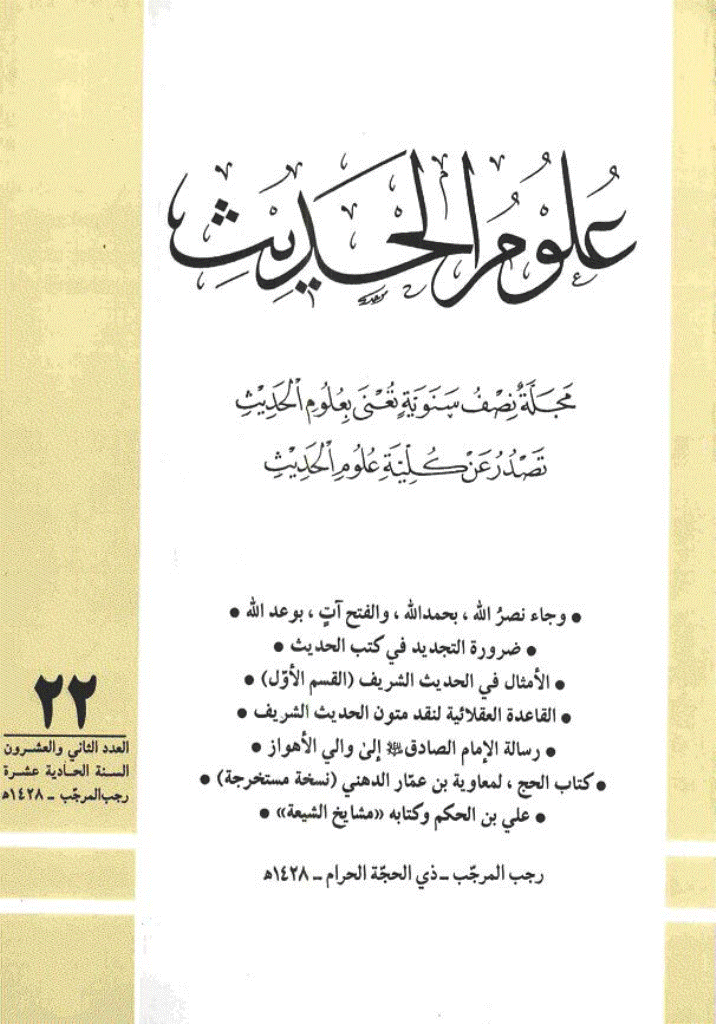 عُلُوْمُ الْحَدِيْثِ
مَجَلَّةٌ نِصْفُ سَنَوِيَّةٍ تُعْنَى بِعُلُومِ الْحَدِيْثِ
تَصْدُرُ عَنْ كُلِّيَّةِ عُلُومِ الْحَدِيْثِ
● وجاء نصرُ الله ، بحمدالله ، والفتح آتٍ ، بوعد الله ●
● ضرورة التجديد في كتب الحديث ●
● الأمثال في الحديث الشريف (القسم الأوّل) ●
● القاعدة العقلائية لنقد متون الحديث الشريف ●
● رسالة الإمام الصادق إلىٰ والي الأهواز ●
● كتاب الحج ، لمعاوية بن عمّار الدهني (نسخة مستخرجة) ●
● علي بن الحكم وكتابه «مشايخ الشيعة» ●
رجب المرجّب ـ ذي الحجّة الحرام ـ ١٤٢٨ه
٢٢
العدد الثاني والعشرون
السنة الحادية عشرة
رجب المرجّب ـ ١٤٢٨ه